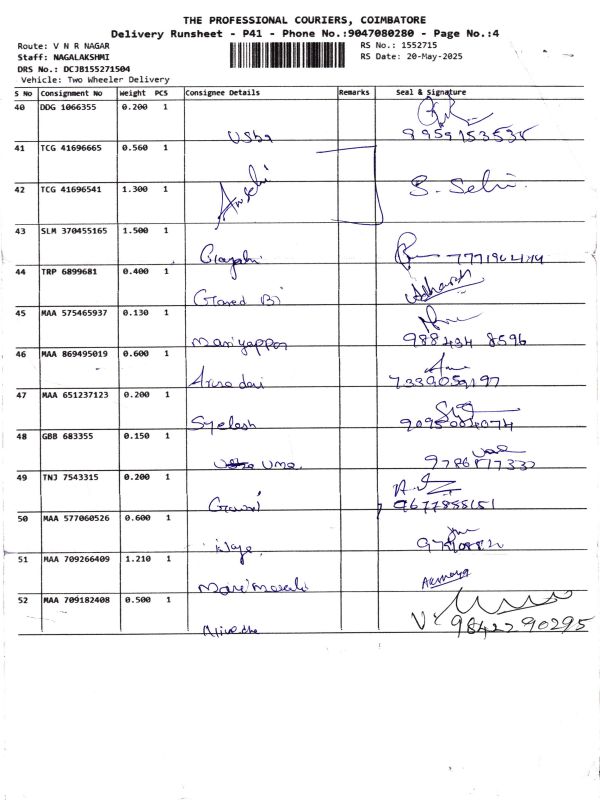 THE PROFESSIONAL COURIERS, COIMBATORE
Delivery Runsheet - P41 - Phone No.:9047080280 - Page No.:4
Route: V N R NAGAR RS No.: 1552715
Staff: NAGALAKSHMI RS Date: 20-May-2025
DRS No.: DCJB155271504
Vehicle: Two Wheeler Delivery
S No Consignment No Weight PCS Consignee Details Remarks Seal & Signature
40 DDG 1066355 0.200 1
Usha 8959153535
41 TCG 41696665 0.560 1
42 TCG 41696541 1.300 1 S. Selvi
43 SLM 370455165 1.500 1
44 TRP 6899681 0.400 1
Adharsh
45 MAA 575465937 0.130 1
Mariyappan 988434 8596
46 MAA 869495019 0.600 1
7339059197
47 MAA 651237123 0.200 1
Syelesh
48 GBB 683355 0.150 1
Uma
49 TNJ 7543315 0.200 1
9677855151
50 MAA 577060526 0.600 1
51 MAA 709266409 1.210 1
52 MAA 709182408 0.500 1
9842290295